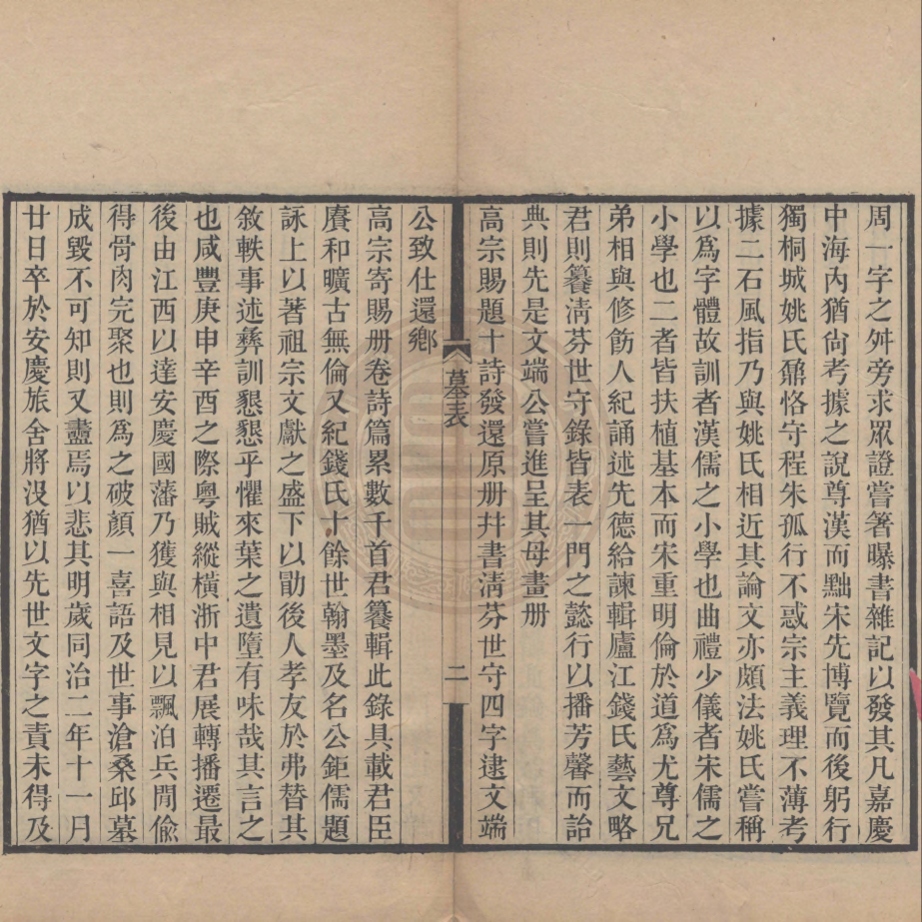 周一字之舛旁求眾證嘗箸曝書雜記以發其凡嘉慶
中海內猶尙考據之說尊漢而黜宋先博覽而後躬行
獨桐城姚氏鼐恪守程朱孤行不惑宗主義理不薄考
據二石風指乃與姚氏相近其論文亦頗法姚氏嘗稱
以爲字體故訓者漢儒之小學也曲禮少儀者宋儒之
小學也二者皆扶植基本而宋重明倫於道爲尤尊兄
弟相與修飭人紀誦述先德給諫輯廬江錢氏藝文略
君則纂淸芬世守錄皆表一門之懿行以播芳馨而詒
典則先是文端公嘗進呈其母畫册
高宗賜題十詩發還原册幷書淸芬世守四字逮文端
墓表
二
公致仕還鄉
高宗寄賜册卷詩篇累數千首君纂輯此錄具載君臣
賡和曠古無倫又紀錢氏十餘世翰墨及名公鉅儒題
詠上以著祖宗文獻之盛下以勖後人孝友於弗替其
敘軼事述彝訓懇懇乎懼來葉之遺墮有味哉其言之
也咸豐庚申辛酉之際粵賊縱橫浙中君展轉播遷最
後由江西以達安慶國藩乃獲與相見以飄泊兵閒偸
得骨肉完聚也則爲之破顏一喜語及世事滄桑邱墓
成毀不可知則又盡焉以悲其明歲同治二年十一月
廿日卒於安慶旅舍將沒猶以先世文字之責未得及